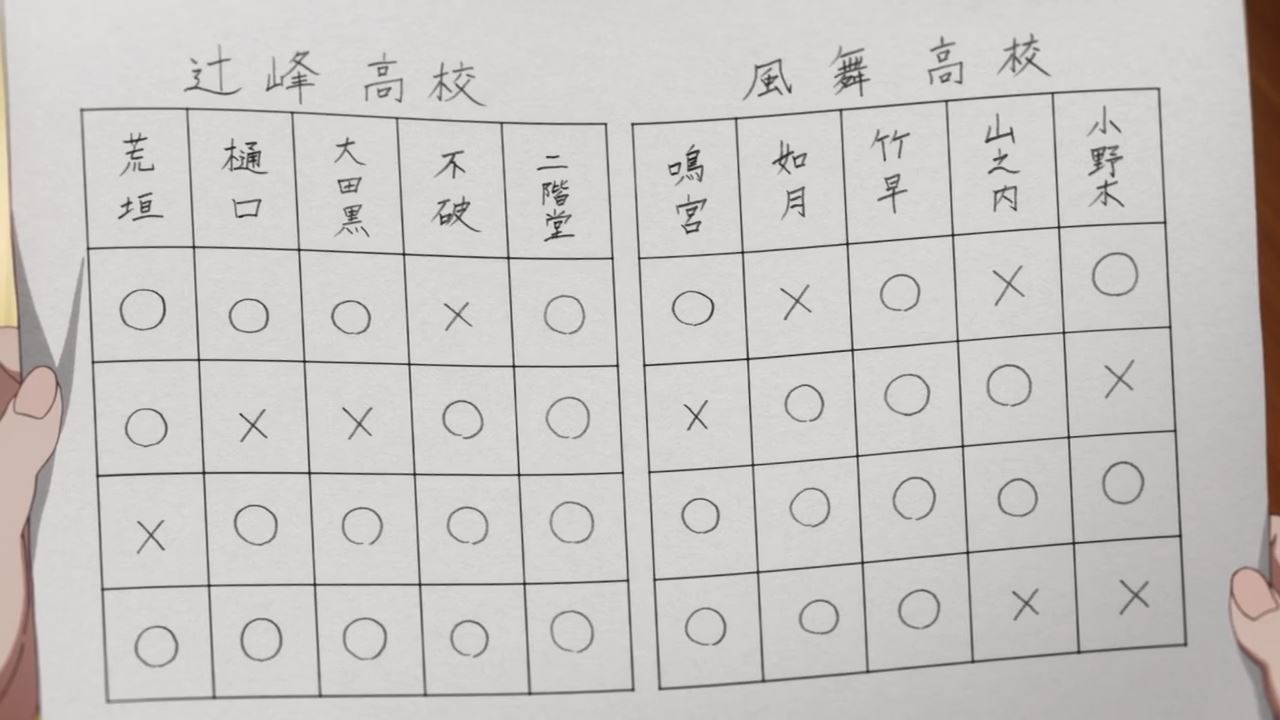 辻峰高校
荒垣 樋口 大田黒 不破 二階堂
○ ○ ○ × ○
○ × × ○ ○
× ○ ○ ○ ○
○ ○ ○ ○ ○
風舞高校
鳴宮 如月 竹早 山之内 小野木
○ × ○ × ○
× ○ ○ ○ ×
○ ○ ○ ○ ○
○ ○ ○ × ×